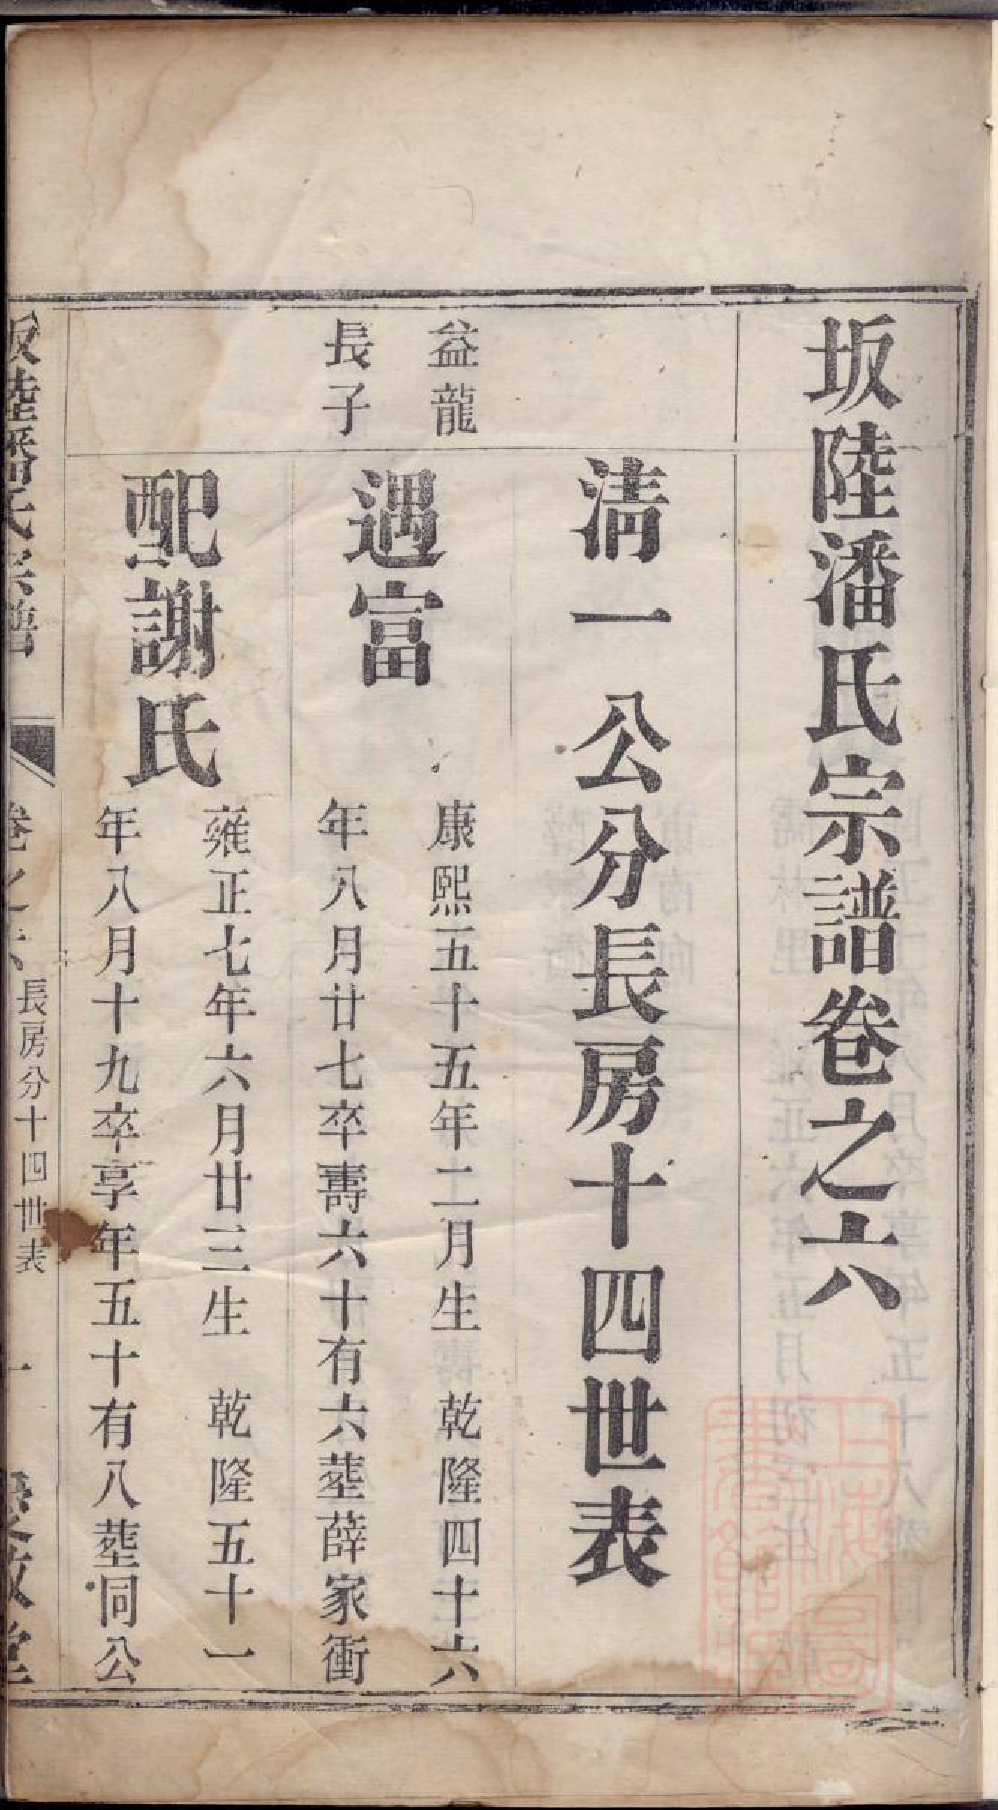 坂陸潘氏宗譜卷之六
清一公分長房十四世表
益龍
長子
遇富
康熙五十五年二月生　乾隆四十六
年八月廿七卒壽六十有六塟薛家衝
配謝氏
雍正七年六月廿三生　乾隆五十一
年八月十九卒享年五十有八塟同公
坂陸潘氏宗譜
卷之六
長房分十四世表
一